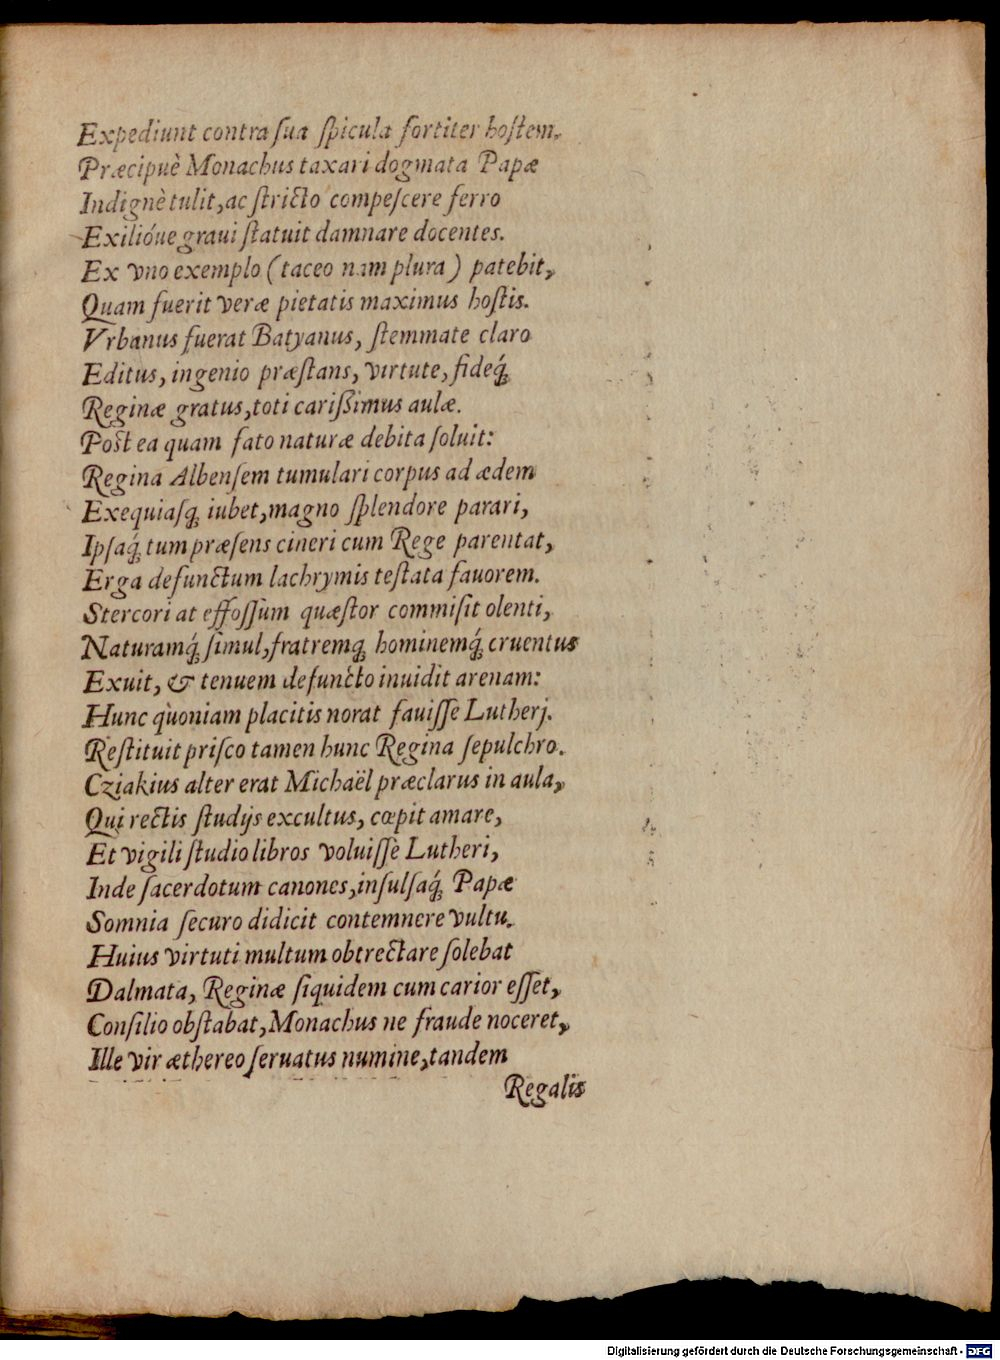 Expediunt contra ſua ſpicula fortiter hoſtem.
Præcipuè Monachus taxari dogmata Papæ
Indignè tulit, ac ſtricto compeſcere ferro
Exilióue graui ſtatuit damnare docentes.
Ex vno exemplo (taceo nam plura) patebit,
Quam fuerit veræ pietatis maximus hoſtis.
Vrbanus fuerat Batyanus, ſtemmate claro
Editus, ingenio præſtans, virtute, fideq́;
Reginæ gratus, toti cariſsimus aulæ.
Poſt ea quam fato naturæ debita ſoluit:
Regina Albenſem tumulari corpus ad ædem
Exequiaſq; iubet, magno ſplendore parari,
Ipſaq́; tum præſens cineri cum Rege parentat,
Erga defunctum lachrymis teſtata fauorem.
Stercori at effoſſum quæſtor commiſit olenti,
Naturamq́; ſimul, fratremq; hominemq́; cruentus
Exuit, & tenuem defuncto inuidit arenam:
Hunc quoniam placitis norat fauiſſe Lutherj.
Reſtituit priſco tamen hunc Regina ſepulchro.
Cziakius alter erat Michaël præclarus in aula,
Qui rectis ſtudijs excultus, cœpit amare,
Et vigili ſtudio libros voluiſſe Lutheri,
Inde ſacerdotum canones, inſulſaq́; Papæ
Somnia ſecuro didicit contemnere vultu.
Huius virtuti multum obtrectare ſolebat
Dalmata, Reginæ ſiquidem cum carior eſſet,
Conſilio obſtabat, Monachus ne fraude noceret,
Ille vir æthereo ſeruatus numine, tandem
Regalis
Digitalisierung gefördert durch die Deutsche Forschungsgemeinschaft - DFG